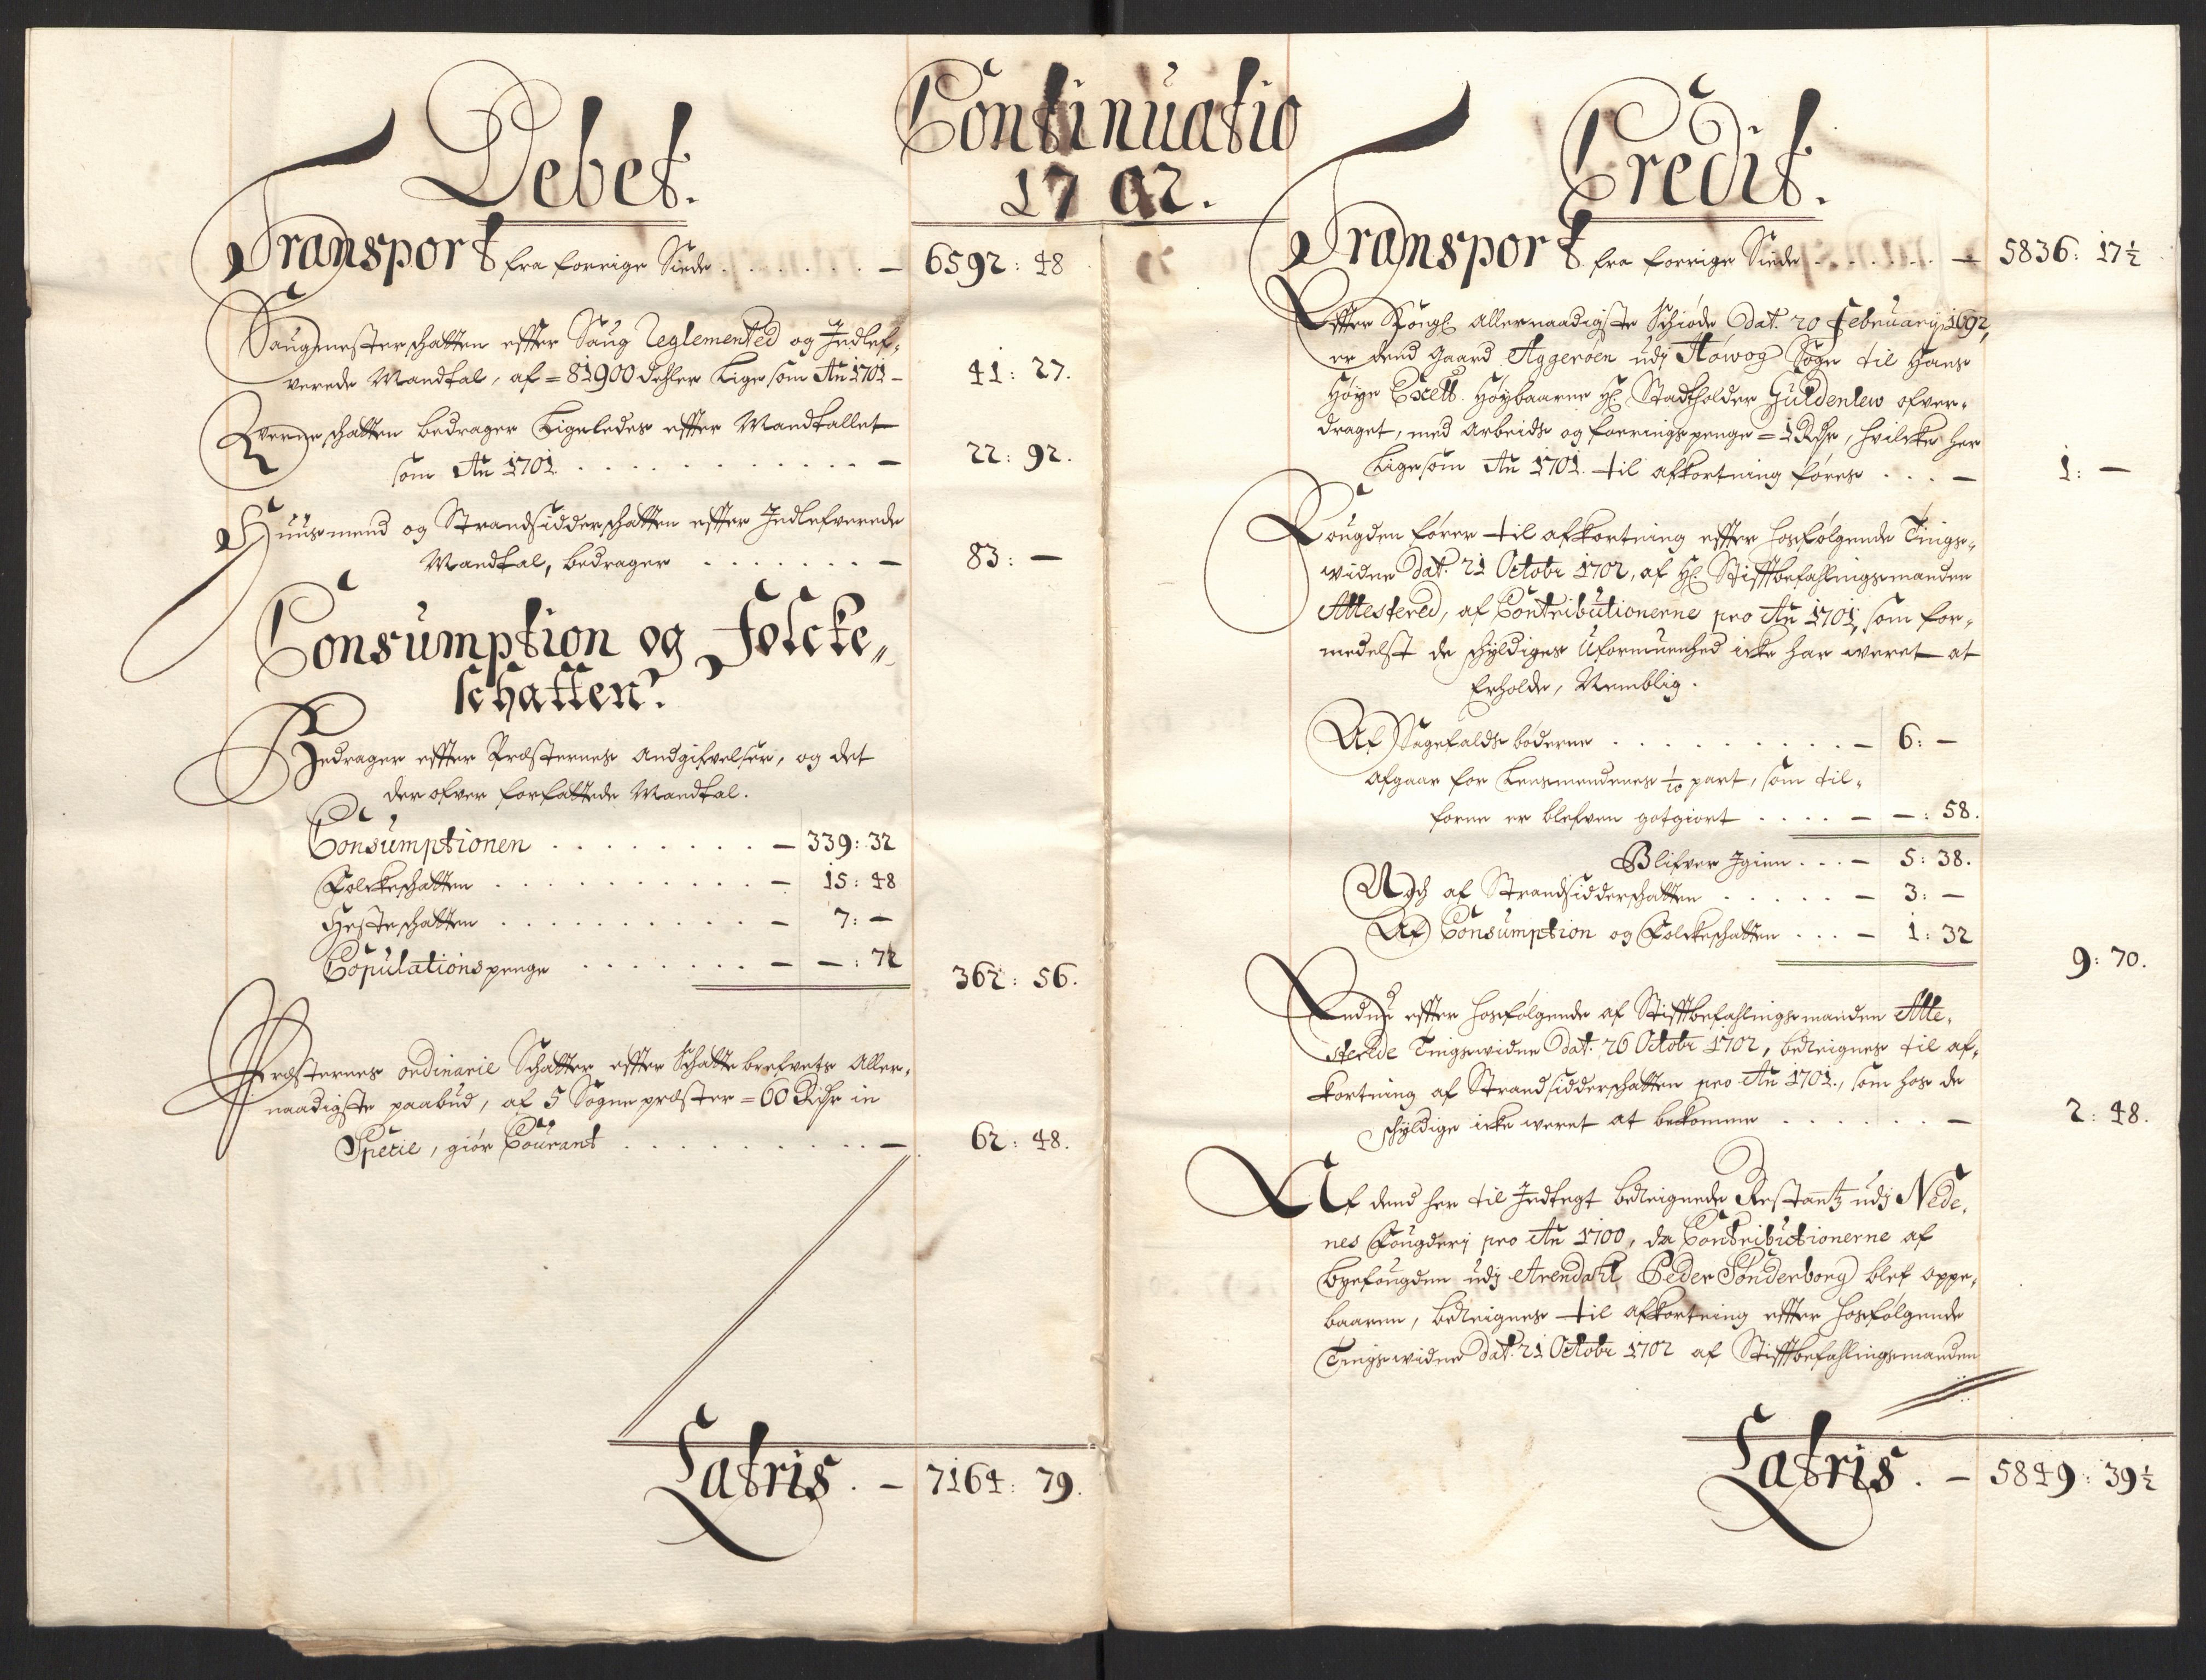 Debet.
Continuatio
1702.
Transport fra forrige Siide . . . . . . — 6592: 48
Saugmesterschatten effter Saug Reglemented og Indlef-
verede Mandtal, af = 81900 dehler Lige som An 1701 — 41: 27.
Qverneschatten bedrager Ligeledes effter Mandtallet
som An 1701 . . . . . . . . . . . — 22: 92.
Huusmend og Strandsidderschatten effter Indlefverede
Mandtal, bedrager . . . . . . . — 83: —
Consumption og Folcke-
schatten.
Bedrager effter Præsternes Andgifvelser, og det
der ofver forfattede Mandtal.
Consumptionen . . . . . . . . — 339: 32
Folckeschatten . . . . . . . . . . — 15: 48
Hesteschatten . . . . . . . . . . — 7: —
Copulationspenge . . . . . . . — —: 72
362: 56.
Præsternes ordinarie Schatter effter Schatte brefvets Aller-
naadigste paabud, af 5 Sogne præster = 60 Rdr in
Specie, giør Courant . . . . . . . . . — 62: 48.
Latris. — 7164: 79.
Credit.
Transport fra forrige Siide . . . . . . — 5836: 17½
Effter Kongl Allernaadigste Schiøde Dat. 20 February 1692,
er dend gaard Aggerøen udj Høwog Sogn til Hans
Høye Excell. Høybaarne H. Stadtholder Guldenlew ofver-
draget, med arbeids og foerings penge = 1 Rdr, hvilcke her
Ligesom An 1701. til afkortning føres . . . — 1: —
Fougden fører til afkortning effter hosfølgende Tings-
widne Dat. 21 Octobr 1702, af H. Stifftbefahlingsmanden
Attestered, af Contributionerne pro An 1701, som for-
medelst de schyldiges Uformuenhed icke har weret at
Erholde, Nemblig.
Af Sagefalds bøderne . . . . . . . . . . — 6: —
Afgaar for Lensmendenes 1/10 part, som til-
forne er blefven gotgiort . . . . — —: 58.
Blifver Igien . . . — 5: 38.
Och af Strandsidderschatten . . . . . — 3: —
Af Consumption og Folckeschatten . . . — 1: 32
9: 70.
Endnu effter hosfølgende af Stifftbefahlingsmanden Atte-
sterede Tingswidne Dat. 26 Octobr 1702, beregnes til af-
kortning af Strandsidderschatten pro An 1701., som hos de
schyldige icke weret at bekomme . . . . . . — 2: 48.
Af dend her til Indtegt beregnede Restantz udj Nede-
nes Fougderj pro An 1700, da Contributionerne af
Byefougden udj Arendahl Peder Sønderborg blef oppe-
baaren, beregnes til afkortning effter hosfølgende
Tingswidne Dat. 21 Octobr 1702 af Stifftbefahlingsmanden
Latris. — 5849: 39½